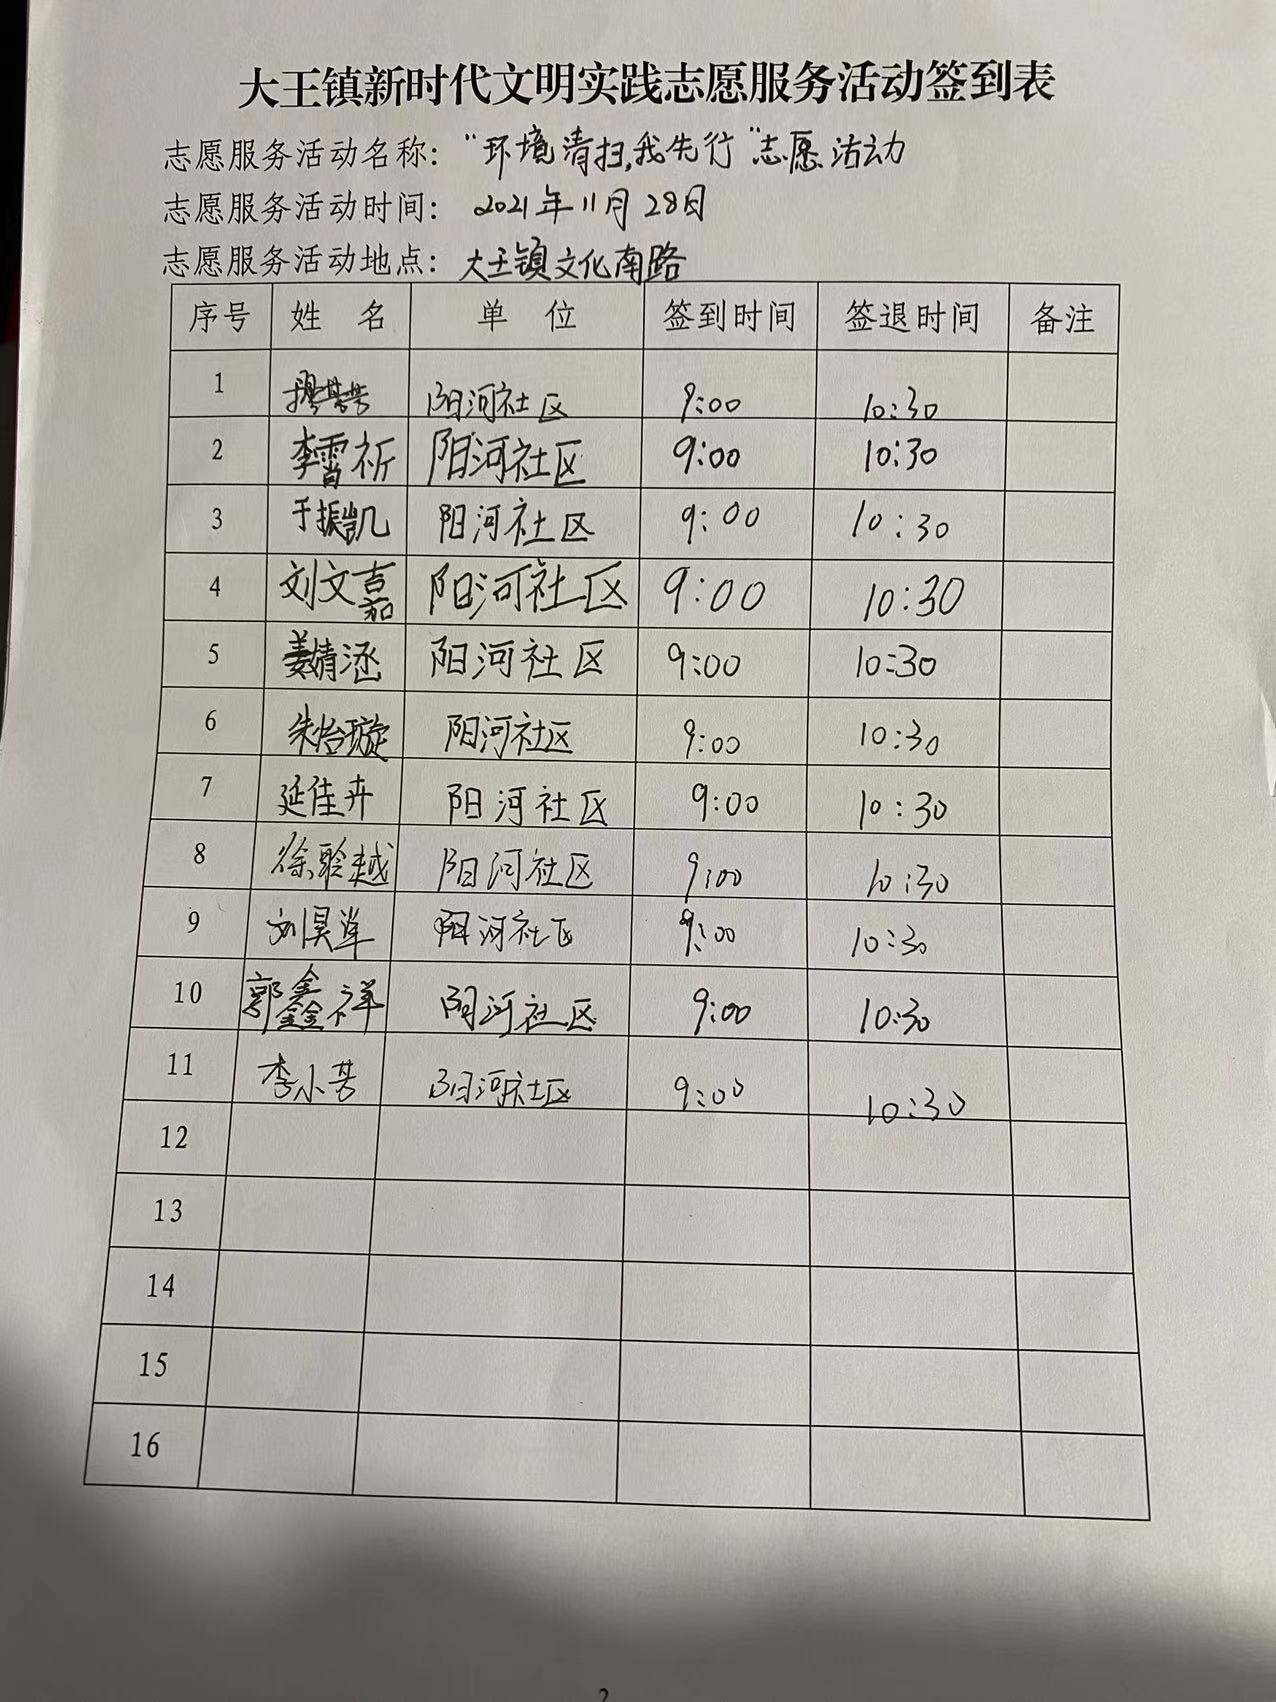 大王镇新时代文明实践志愿服务活动签到表
志愿服务活动名称："环境清扫,我先行"志愿活动
志愿服务活动时间：2021年11月28日
志愿服务活动地点：大王镇文化南路
序号 姓 名 单 位 签到时间 签退时间 备注
1 阳河社区 9:00 10:30
2 李雪祈 阳河社区 9:00 10:30
3 于振凯 阳河社区 9:00 10:30
4 刘文嘉 阳河社区 9:00 10:30
5 姜婧涵 阳河社区 9:00 10:30
6 朱怡璇 阳河社区 9:00 10:30
7 延佳卉 阳河社区 9:00 10:30
8 徐聆越 阳河社区 9:00 10:30
9 刘昊 阳河社区 9:00 10:30
10 郭鑫祥 阳河社区 9:00 10:30
11 李小芳 阳河社区 9:00 10:30
12
13
14
15
16
2